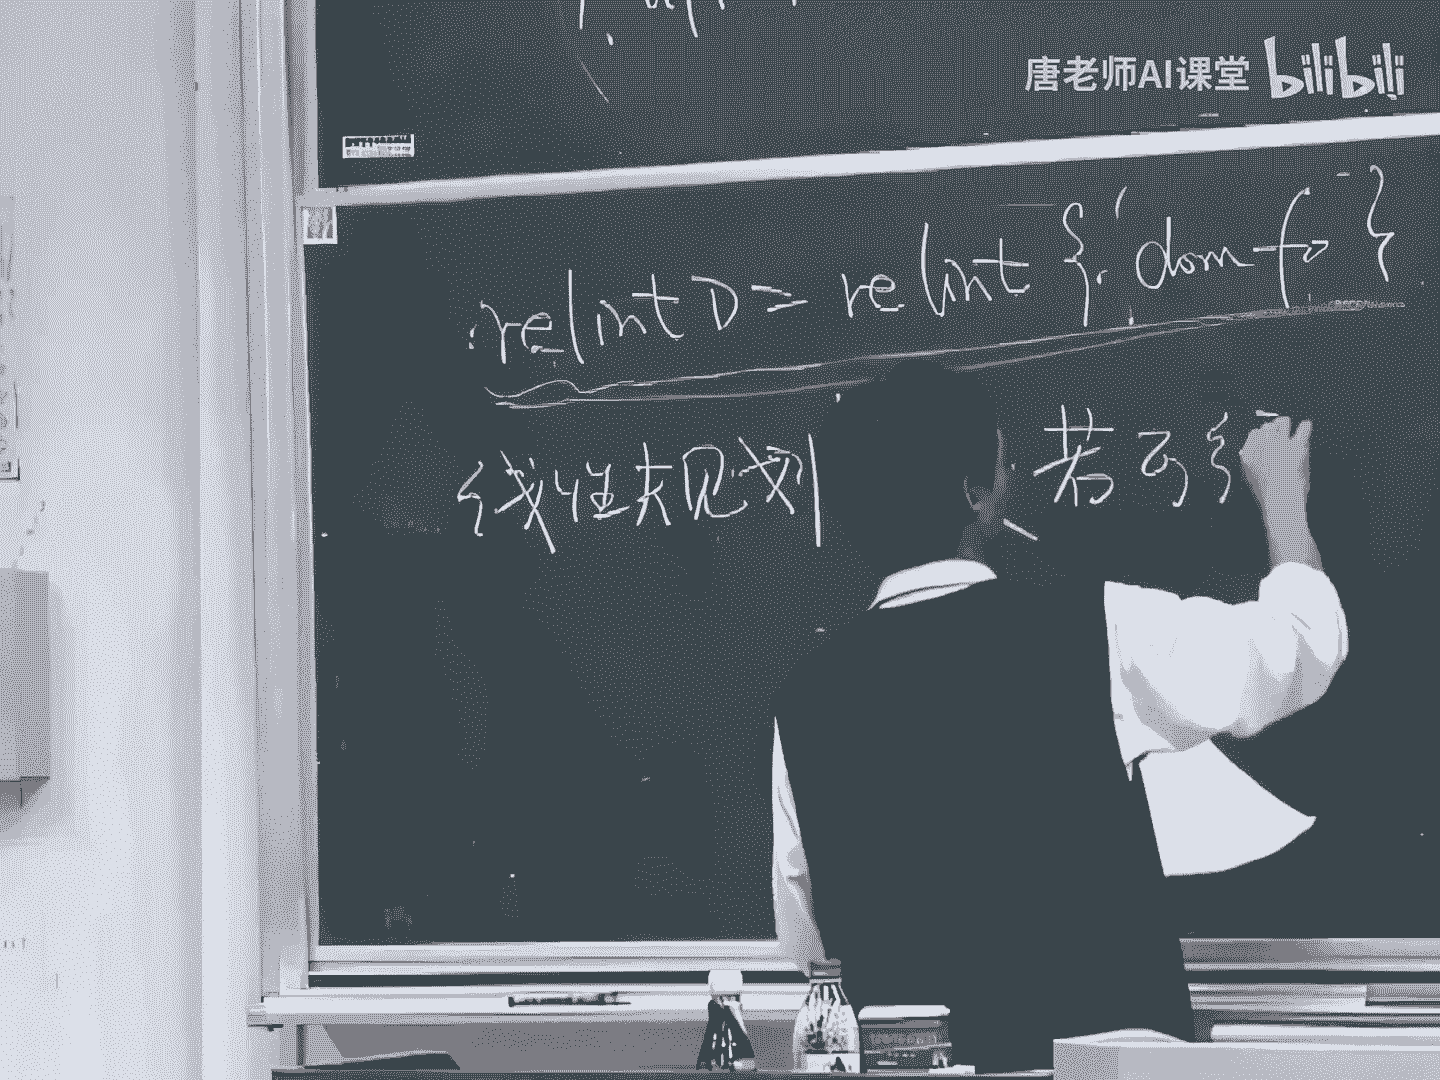 唐老师AI课堂 bilibili
relint D = relint { dom f₀ }
线性规划 若可